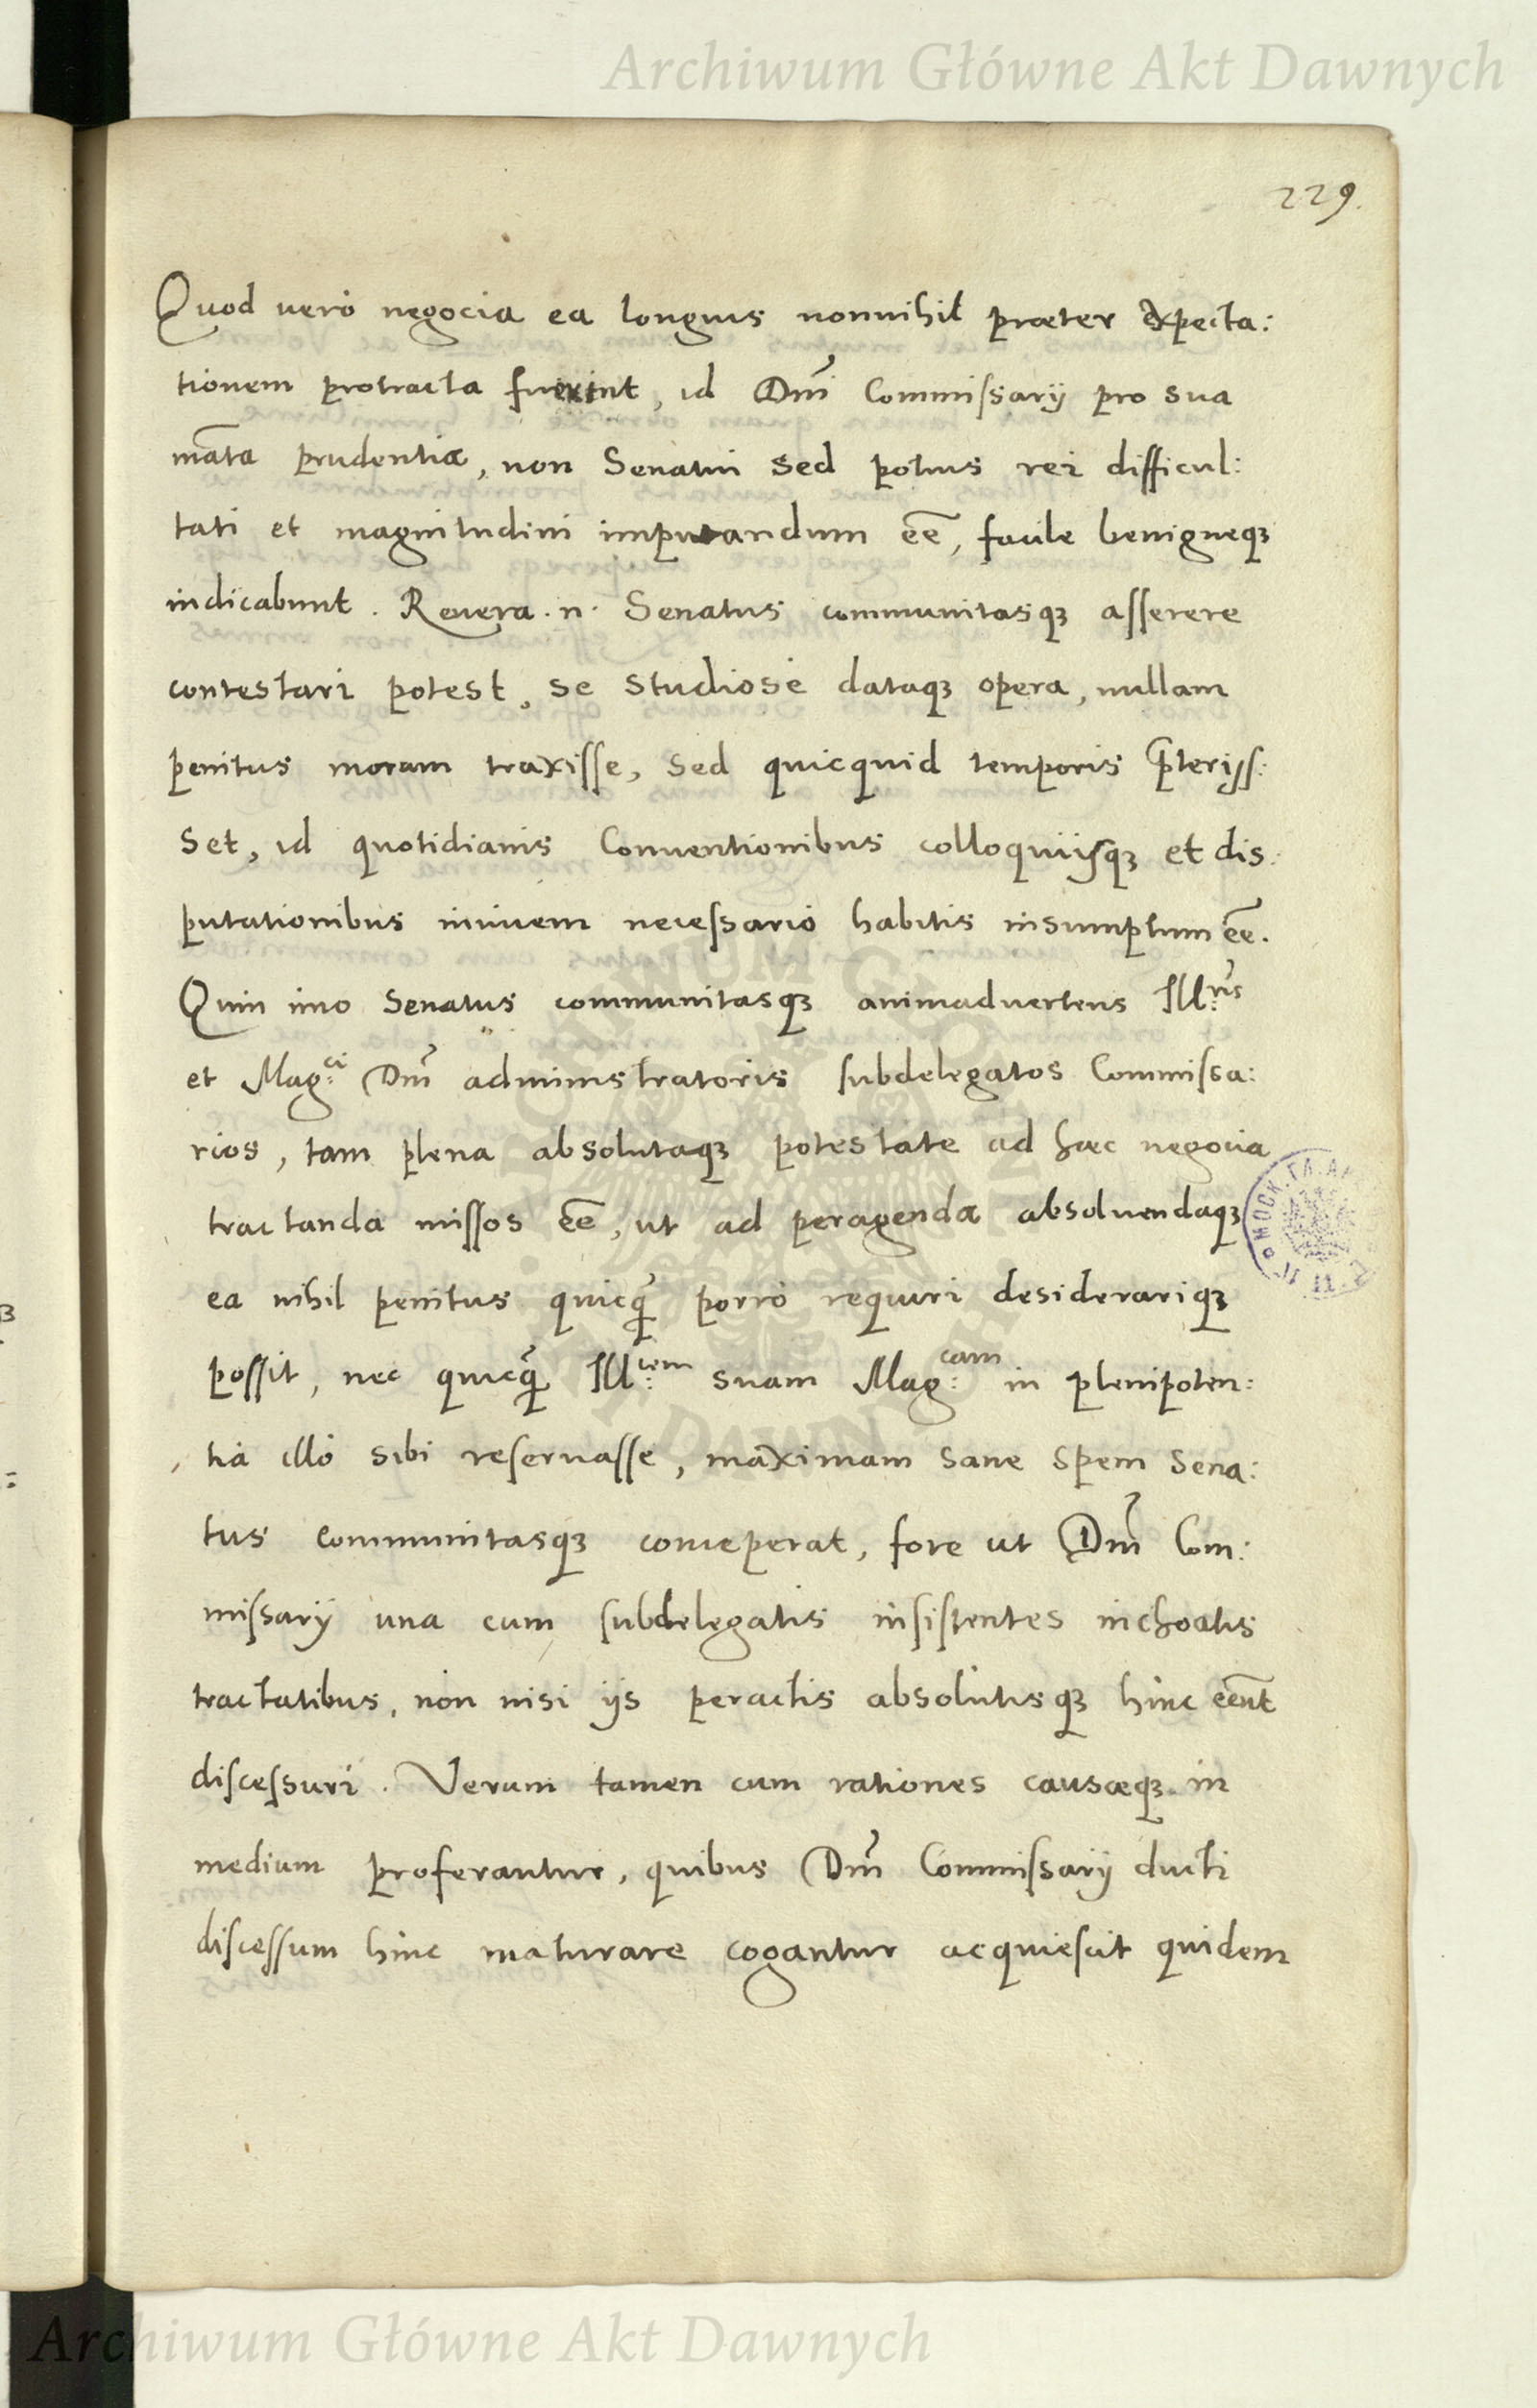 Archiwum Główne Akt Dawnych
229.
Quod uerò negocia ea longius nonnihil præter expecta:
tionem protracta fuerint, id Dn̄i Commissarij pro sua
in̄ata prudentia, non Senatui sed potius rei difficul:
tati et magnitudini imputandum eē, facile benigneqꝫ
iudicabunt. Reuera .n. Senatus communitasqꝫ asserere
contestari potest, se studiosè dataqꝫ opera, nullam
penitus moram traxisse, sed quicquid temporis p̄terijs:
set, id quotidianis Conuentionibus colloquijsqꝫ et dis:
putationibus inuicem necessariò habitis insumptum eē.
Quin imo Senatus communitasqꝫ animaduertens Ill:ris
et Mag:ci Dn̄i administratoris subdelegatos Commissa:
rios, tam plena absolutaqꝫ potestate ad hæc negocia
tractanda missos eē, ut ad peragenda absoluendaqꝫ
ea nihil penitus quicq̄ porrò requiri desiderariqꝫ
possit, nec quicq̄ Ill:tem suam Mag:cam in plenipoten:
tia illo sibi reseruasse, maximam sane spem Sena:
tus communitasqꝫ conceperat, fore ut Dn̄i Com:
missarij una cum subdelegatis insistentes inchoatis
tractatibus, non nisi ijs peractis absolutisqꝫ hinc eēnt
discessuri. Verum tamen cum rationes causæqꝫ in
medium proferantur, quibus Dn̄i Commissarij ducti
discessum hinc maturare cogantur acquiescit quidem
Archiwum Główne Akt Dawnych